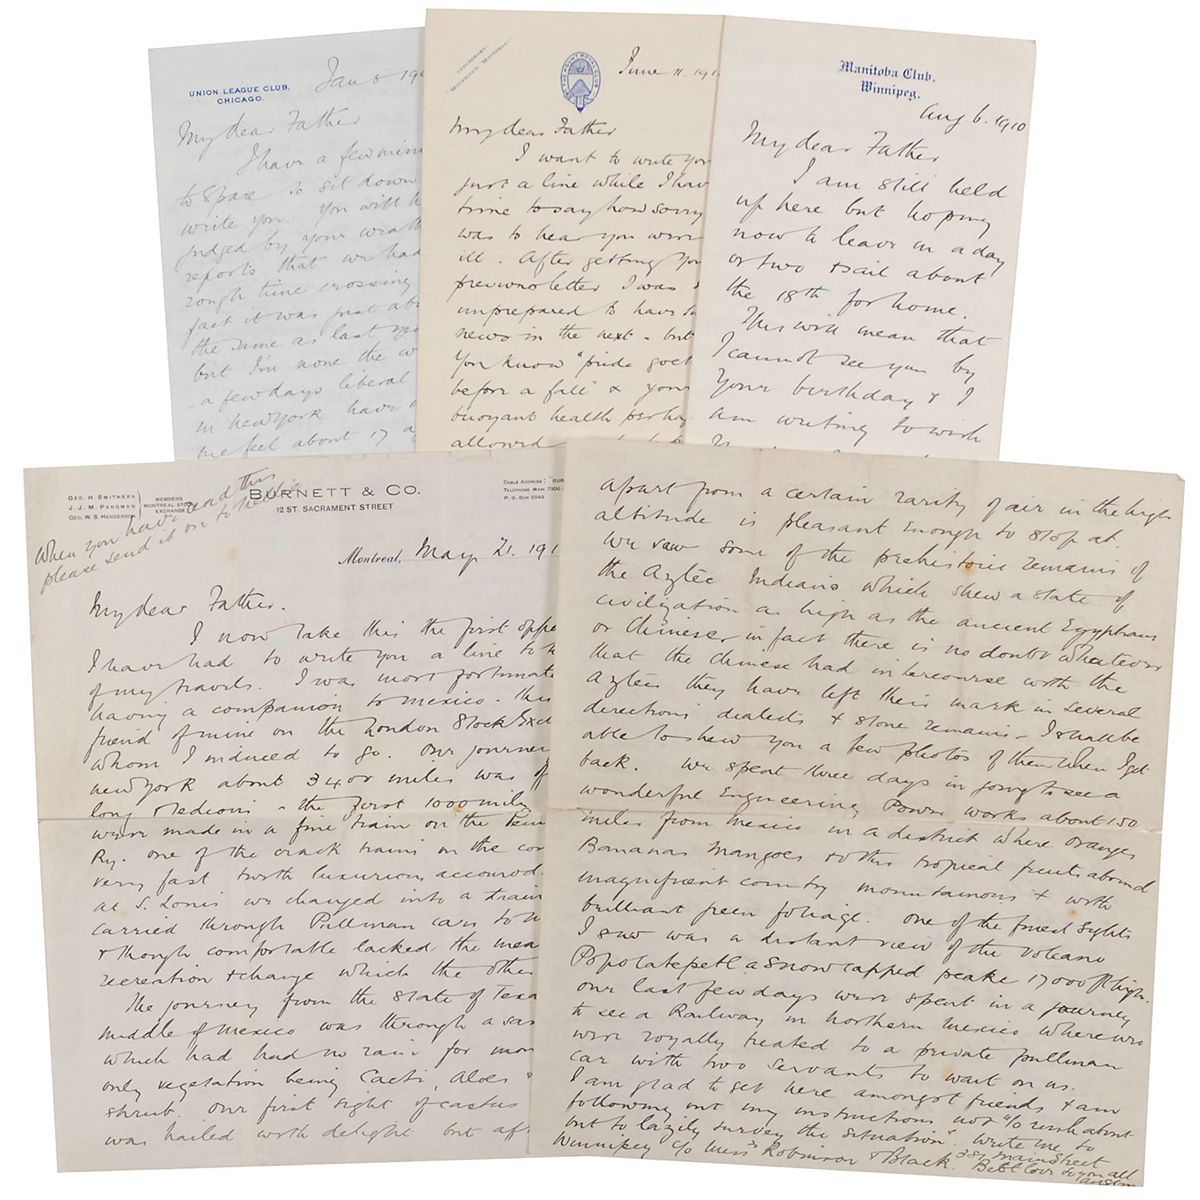 UNION LEAGUE CLUB,
CHICAGO.
Jan 8 19
My dear Father
I have a few min
to spare to sit down
write you. You will h
judged by your wea
reports that we had
rough time crossing
fact it was just abo
the same as last yea
but I'm none the w
a few days liberal
in New York have
me feel about 17
THE MOUNT ROYAL CLUB
June 11. 191
My dear Father
I want to write you
just a line while I hav
time to say how sorry
was to hear you were
ill. After getting you
previous letter I was
unprepared to have s
news in the next - but
you know "pride goet
before a fall" & your
buoyant health perha
allowed
Manitoba Club,
Winnipeg.
Aug 6. 1910
My dear Father
I am still held
up here but hoping
now to leave in a day
or two & sail about
the 18th for home.
This will mean that
I cannot see you by
your birthday & I
am writing to wish
GEO. H. SMITHERS
J. J. M. PANGMAN
GEO. W. S. HENDERSON
MEMBERS
MONTREAL STOCK
EXCHANGE
BURNETT & CO.
12 ST. SACRAMENT STREET
CABLE ADDRESS: "BUR
TELEPHONE MAIN 7900
P. O. BOX 2243
When you have read this
please send it on to
Montreal, May 21. 191
My dear Father.
I now take this the first oppo
I have had to write you a line to
of my travels. I was most fortunate
having a companion to Mexico. this
friend of mine on the London Stock Exc
whom I induced to go. Our journey
New York about 3400 miles was
long & tedious - the first 1000 miles
were made in a fine train on the Pen
Ry. one of the crack trains in the co
very fast with luxurious accomod
at S. Louis we changed into a train
carried through Pullman cars to
& though comfortable lacked the mea
recreation & change which the other
The journey from the state of Texa
middle of Mexico was through a sa
which had had no rain for mon
only vegetation being Cacti, Aloes
shrub. Our first sight of cactus
was hailed with delight but aft
apart from a certain rarity of air in the high
altitude is pleasant enough to stop at.
We saw some of the prehistoric remains of
the Aztec Indians which shew a state of
civilization as high as the ancient Egyptians
or Chinese, in fact there is no doubt whatever
that the Chinese had intercourse with the
Aztecs they have left their mark in several
directions dialects & stone remains - I shall be
able to shew you a few photos of them when I get
back. We spent three days in going to see a
wonderful Engineering Power works about 150
miles from Mexico in a district where oranges
Bananas Mangoes & other tropical fruits abound
magnificent country mountainous & with
brilliant green foliage. One of the finest sights
I saw was a distant view of the Volcano
Popocatepetl a snow capped peak 17000 ft high.
Our last few days were spent in a journey
to see a Railway in northern Mexico where we
were royally treated to a private pullman
car with two servants to wait on us.
I am glad to get here amongst friends & am
following out my instructions "not to rush about
but to lazily survey the situation". Write me to
Winnipeg c/o Mess Robinson & Black. 381 Main Street
Best love to you all